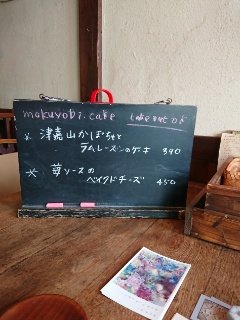 mokuyobi.cake cake set
※ 津嘉山かぼちゃと
ラムレーズンのケーキ 390
※ 苺ソースの
ベイクドチーズ 450